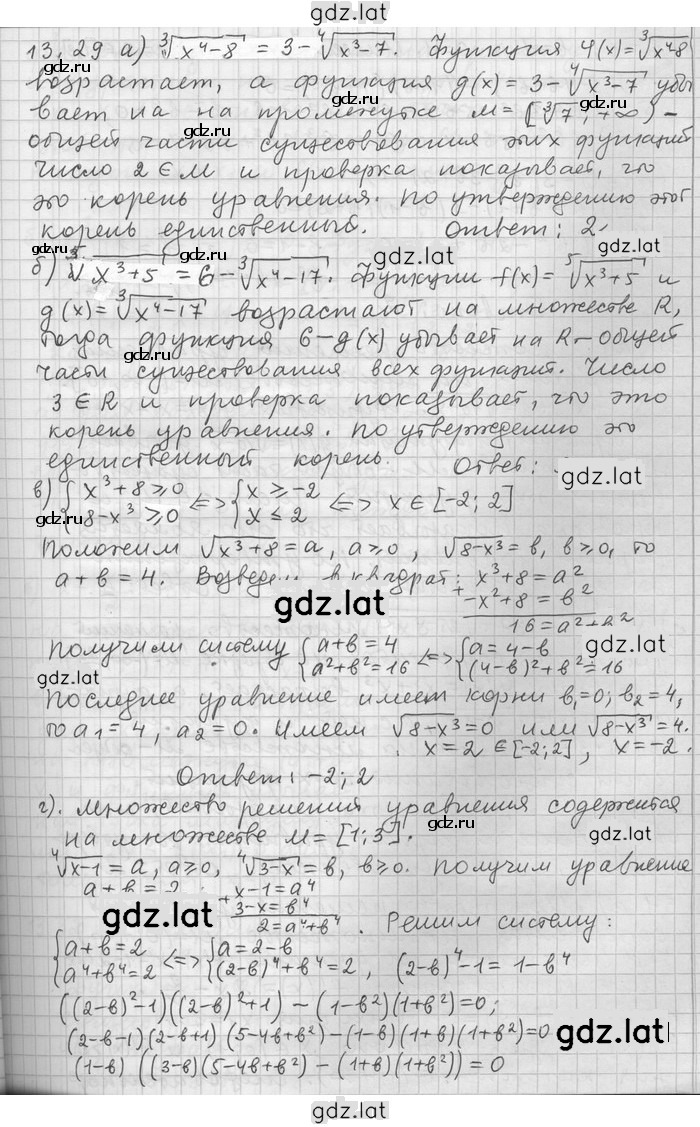 gdz.lat
13.29 а) ∛(x⁴-8) = 3 - ∜(x³-7). Функция φ(x) = ∛(x⁴-8)
возрастает, а функция g(x) = 3 - ∜(x³-7) убы
вает на на промежутке M = [∛7; +∞) -
общей части существования этих функций
Число 2 ∈ M и проверка показывает, что
это корень уравнения. По утверждению этот
корень единственный. Ответ: 2.
б) ⁵√(x³+5) = 6 - ∛(x⁴-17). Функции f(x) = ⁵√(x³+5) и
g(x) = ∛(x⁴-17) возрастают на множестве R,
тогда функция 6-g(x) убывает на R - общей
части существования всех функций. Число
3 ∈ R и проверка показывает, что это
корень уравнения. По утверждению это
единственный корень. Ответ:
в) {x³+8 ≥ 0 {8-x³ ≥ 0 <=> {x ≥ -2 {x ≤ 2 <=> x ∈ [-2; 2]
Положим √(x³+8) = a, a ≥ 0, √(8-x³) = в, в ≥ 0, то
a + в = 4. в квадрат: x³+8 = a²
+ -x²+8 = в²
16 = a²+в²
Получили систему {a+в = 4 {a²+в² = 16 <=> {a = 4-в {(4-в)²+в² = 16
Последнее уравнение имеет корни в₁=0; в₂=4,
то a₁ = 4, a₂ = 0. Имеем √(8-x³) = 0 или √(8-x³) = 4.
x = 2 ∈ [-2; 2], x = -2.
Ответ: -2; 2
г). Множество решений уравнения содержится
на множестве M = [1; 3].
∜(x-1) = a, a ≥ 0, ∜(3-x) = в, в ≥ 0. Получим уравнение
a + в = 2. + x-1 = a⁴
3-x = в⁴
2 = a⁴+в⁴. Решим систему:
{a+в = 2 {a⁴+в⁴ = 2 <=> {a = 2-в {(2-в)⁴+в⁴ = 2, (2-в)⁴-1 = 1-в⁴
((2-в)²-1)((2-в)²+1) - (1-в²)(1+в²) = 0;
(2-в-1)(2-в+1)(5-4в+в²) - (1-в)(1+в)(1+в²) = 0
(1-в)((3-в)(5-4в+в²) - (1+в)(1+в²)) = 0
gdz.lat